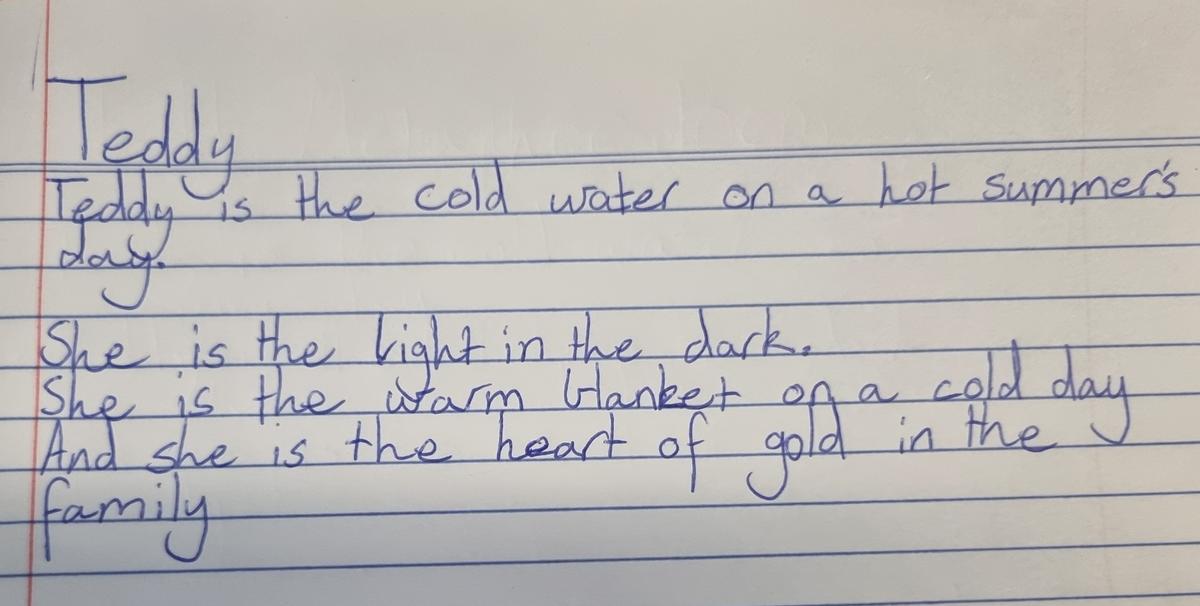 Teddy
Teddy is the cold water on a hot summer's
day.
She is the light in the dark.
She is the warm blanket on a cold day
And she is the heart of gold in the
family